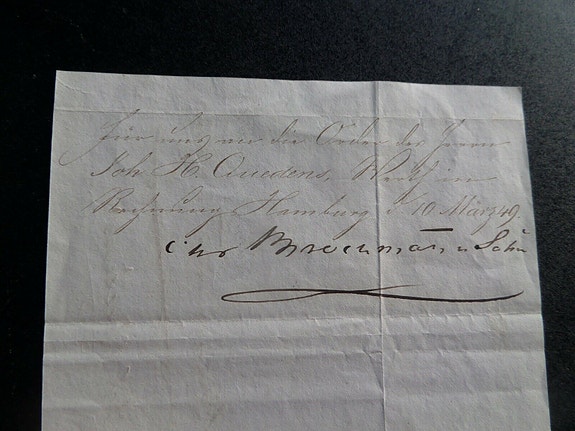 Für uns an die Order des Herrn
Joh. H. Quedens, Werth in
Rechnung Hamburg d 10 März 49.
Chr Brockmann & Sohn